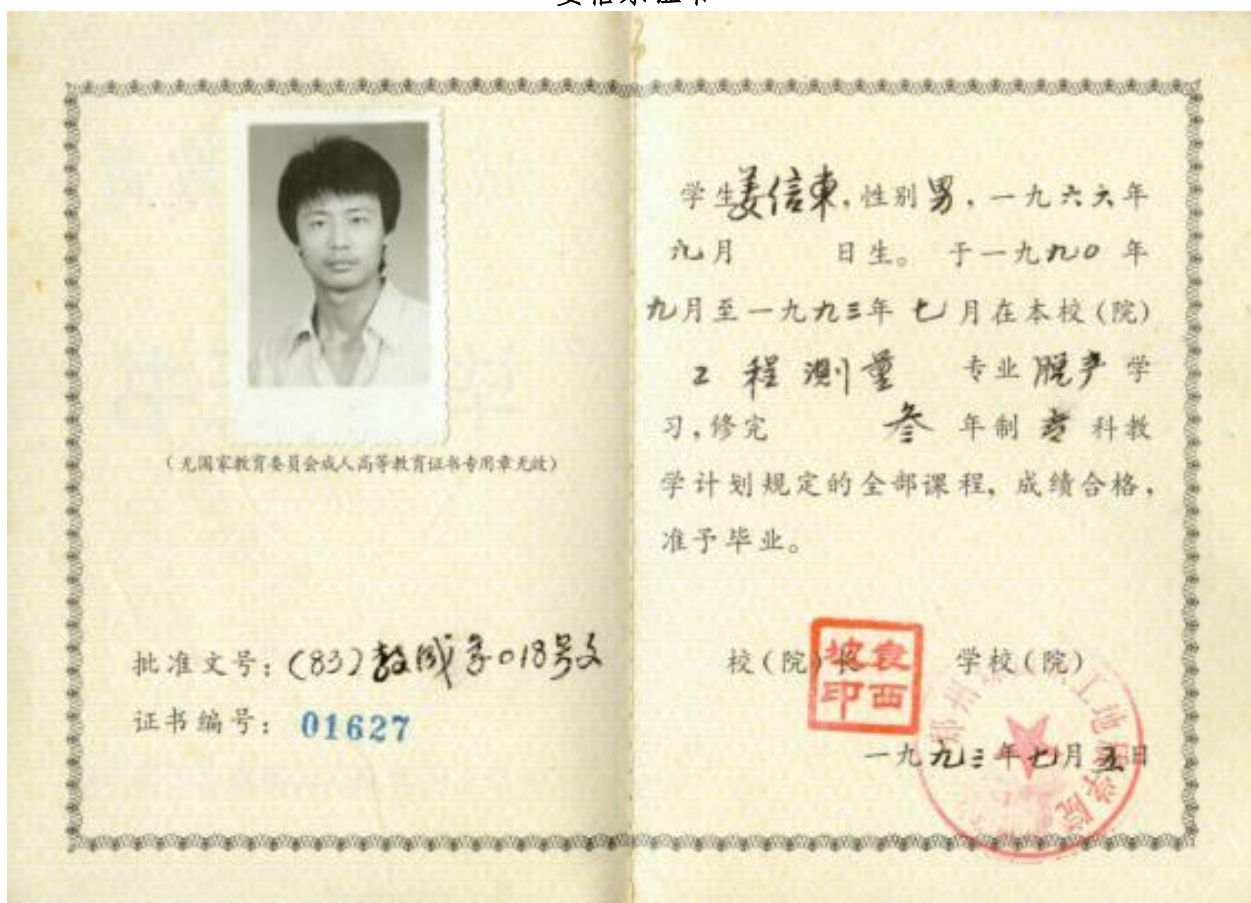 (无国家教育委员会成人高等教育证书专用章无效)
批准文号：(83)教成字018号文
证书编号：01627
学生姜信東，性别男，一九六六年
九月　　日生。于一九九0年
九月至一九九三年七月在本校(院)
工程测量　专业脱产学
习，修完　叁年制专科教
学计划规定的全部课程，成绩合格，
准予毕业。
校(院)长　学校(院)
袁西坡印
一九九三年七月五日
郑州
工地
学院